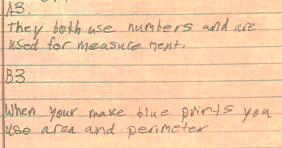 A3.
They both use numbers and are
used for measure ment.
B3
When your make blue prints you
Use area and perimeter